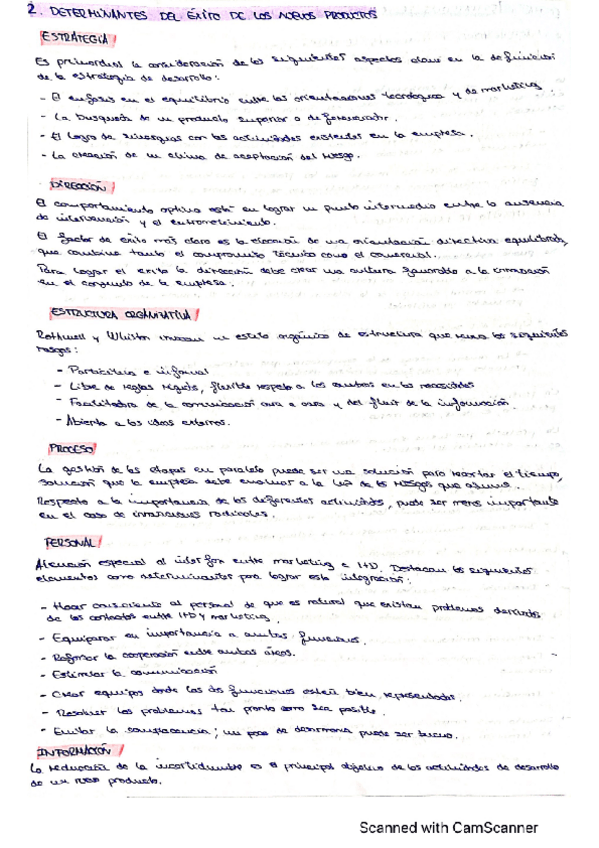 2. DETERMINANTES DEL ÉXITO DE LOS NUEVOS PRODUCTOS
ESTRATEGIA
Es primordial la consideración de los siguientes aspectos clave en la definición
de la estrategia de desarrollo:
- El énfasis en el equilibrio entre las orientaciones tecnológica y de marketing
- La busqueda de un producto superior o diferenciador.
- El logro de sinergias con las actividades existentes en la empresa.
- La creación de un clima de aceptación del riesgo.
DIRECCIÓN
El comportamiento optimo está en lograr un punto intermedio entre la ausencia
de intervención y el entrometimiento.
El factor de éxito más claro es la elección de una orientación directiva equilibrada,
que combina tanto el compromiso técnico como el comercial.
Para lograr el exito la dirección debe crear una cultura favorable a la innovación
en el conjunto de la empresa.
ESTRUCTURA ORGANIZATIVA
Rothwell y Whiston un estilo orgánico de estructura que reuna los siguientes
rasgos:
- Participativa e informal
- Libre de reglas rígidas, flexible respeto a los cambios en las necesidades
- Facilitadora de la comunicación cara a cara y del fluir de la información.
- Abierta a las ideas externas.
PROCESO
La gestión de las etapas en paralelo puede ser una solución para recortar el tiempo,
solución que la empresa debe evaluar a la luz de los riesgos que asume.
Respecto a la importancia de las diferentes actividades, puede ser menos importante
en el caso de innovaciones radicales.
PERSONAL
Atención especial al interfaz entre marketing e I+D. Destacan los siguientes
elementos como determinantes para lograr esta integración:
- Hacer consciente al personal de que es natural que existan problemas derivados
de los contactos entre I+D y marketing.
- Equiparar en importancia a ambas funciones.
- Reforzar la cooperación entre ambas áreas.
- Estimular la comunicación
- Crear equipos donde las dos funciones estén bien representadas.
- Resolver los problemas tan pronto como sea posible.
- Evitar la complacencia; un poco de desarmonía puede ser bueno.
INFORMACIÓN
La reducción de la incertidumbre es el principal objetivo de las actividades de desarrollo
de un nuevo producto.
Scanned with CamScanner